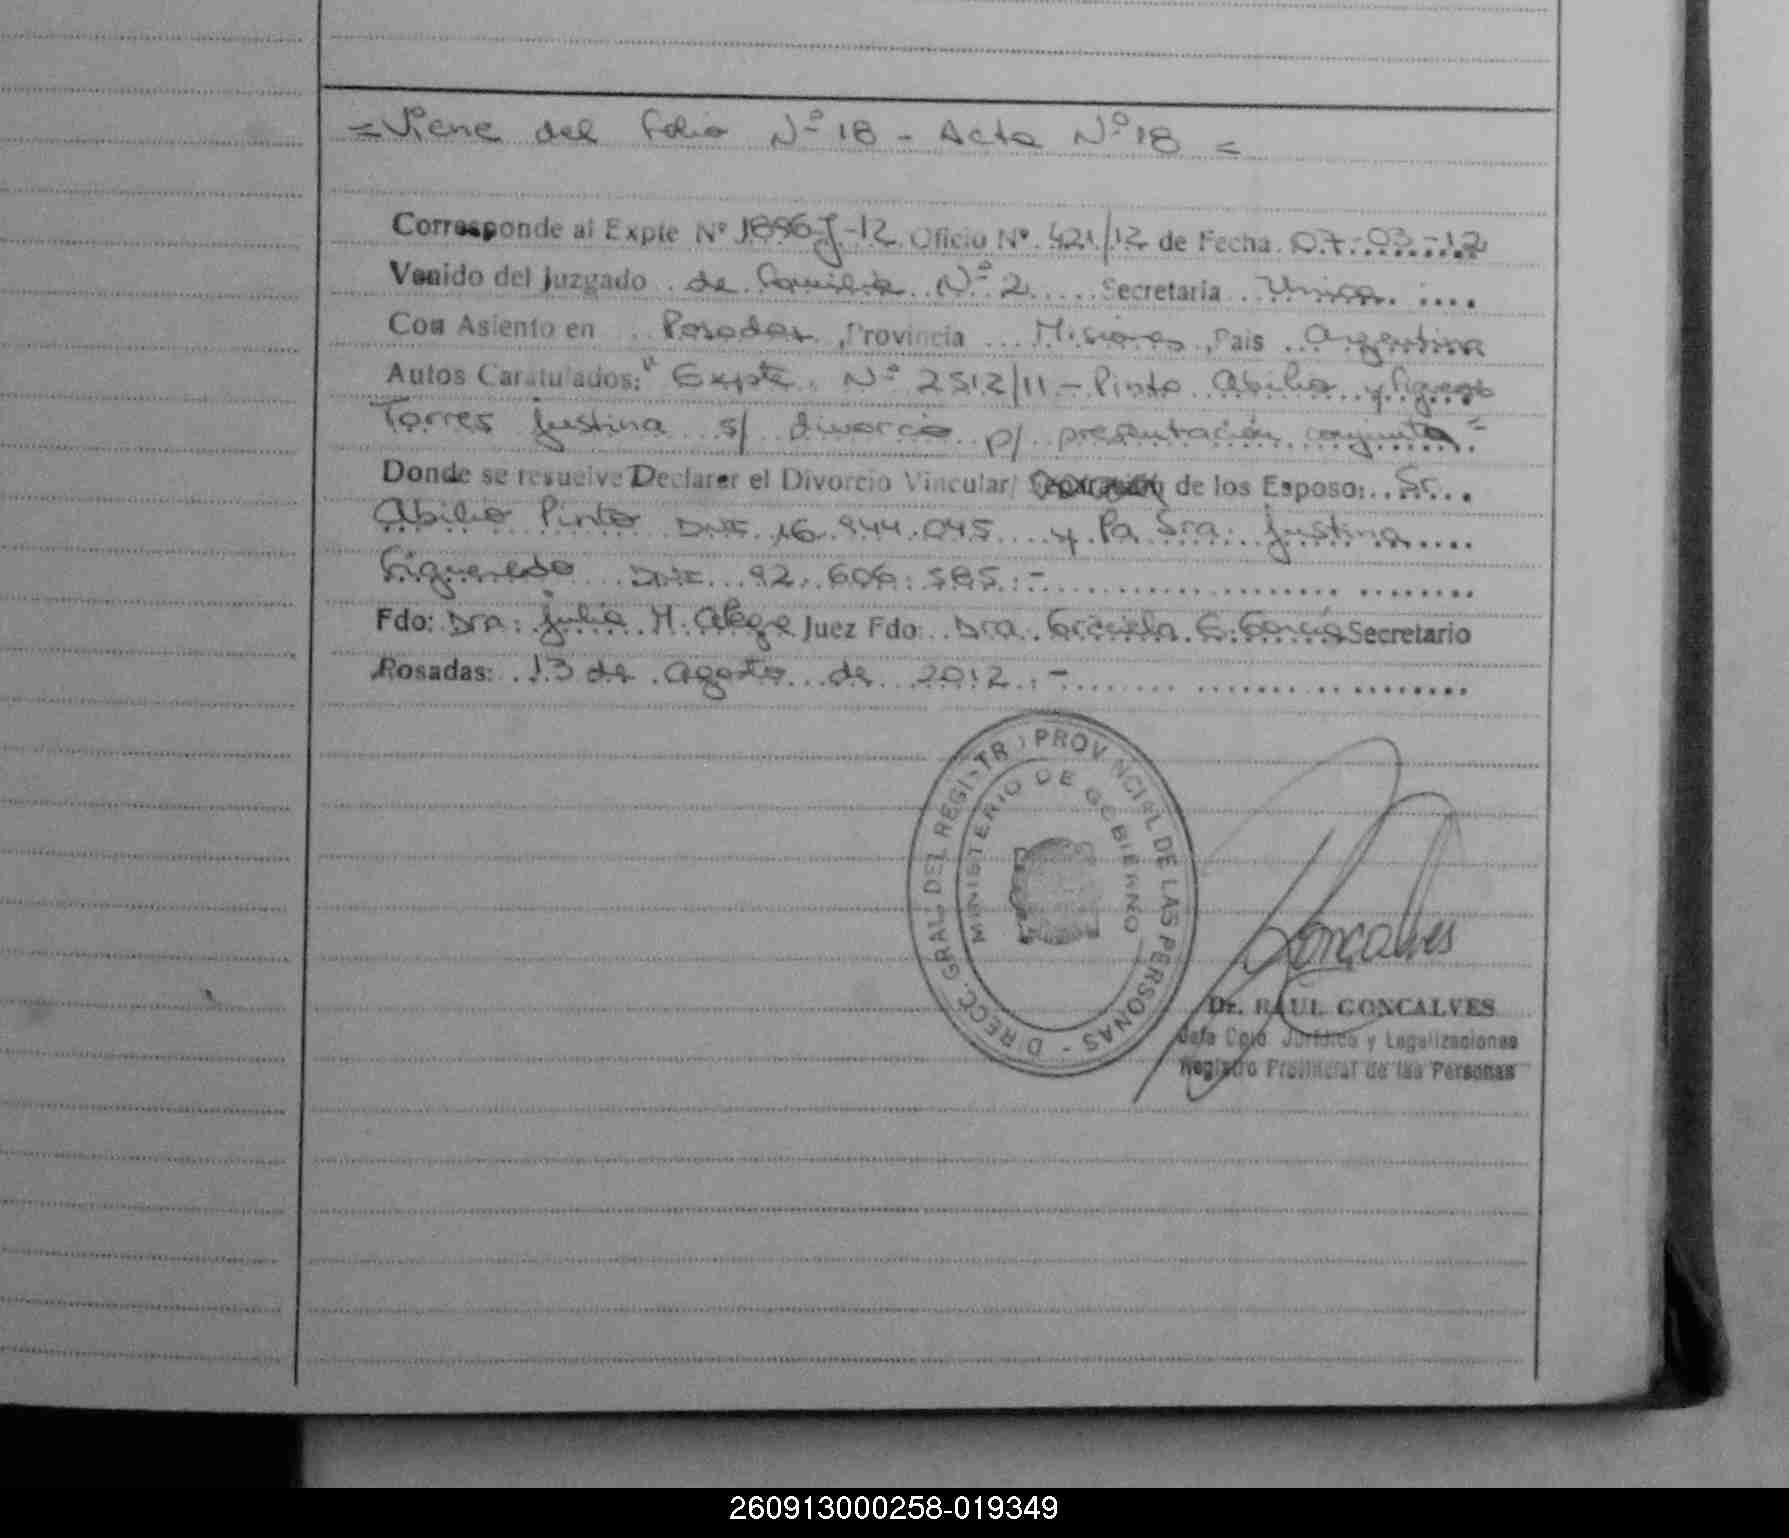 = Viene del folio Nº 18 - Acta Nº 18 =
Corresponde al Expte Nº 1896-J-12 Oficio Nº 421/12 de Fecha 07-03-12
Venido del Juzgado de Familia Nº 2 Secretaria Unica
Con Asiento en Posadas, Provincia Misiones, Pais Argentina
Autos Caratulados: "Expte. Nº 2512/11 - Pinto Abilio y
Torres Justina s/ divorcio p/ presentación conjunta"
Donde se resuelve Declarar el Divorcio Vincular/ Separación de los Esposo: Sr.
Abilio Pinto DNI 16.944.045 y la Sra. Justina
Figueredo DNI 92.606.585.-
Fdo: Dra. Julia H. Alegre Juez Fdo: Dra. Graciela E. García Secretario
Posadas: 13 de agosto de 2012.-
DIRECC. GRAL. DEL REGISTRO PROVINCIAL DE LAS PERSONAS -
MINISTERIO DE GOBIERNO
Gonçalves
Dr. RAUL GONCALVES
Jefe Dpto. Jurídico y Legalizaciones
Registro Provincial de las Personas
260913000258-019349